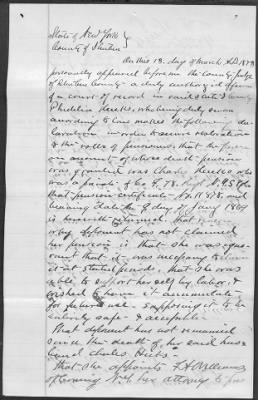 State of New York }
County of
On this 13. day of March A.D. 1878
personally appeared before me the County Judge
of County a duly authorized officer
of a court of record in said State & County
who being duly sworn
according to law makes the following de-
claration in order to secure restoration
to the rolls of pensioners, that the person
on account of whose death pension
was granted was Charles who
was a private of Co. F. 78. Regt N.Y.S.V.
that pension certificate No.
bearing date the day of Jany 1869
is herewith returned, that
why deponent has not claimed
her pension is that she was igno-
rant that it was necessary to
it at stated periods, that she was
able to support herself by labor, &
wished to have it accumulate
for future use supposing it to be
entirely safe &
That deponent has not remarried
since the death of her said hus-
band Charles
That she appoints
of N.Y. her attorney to